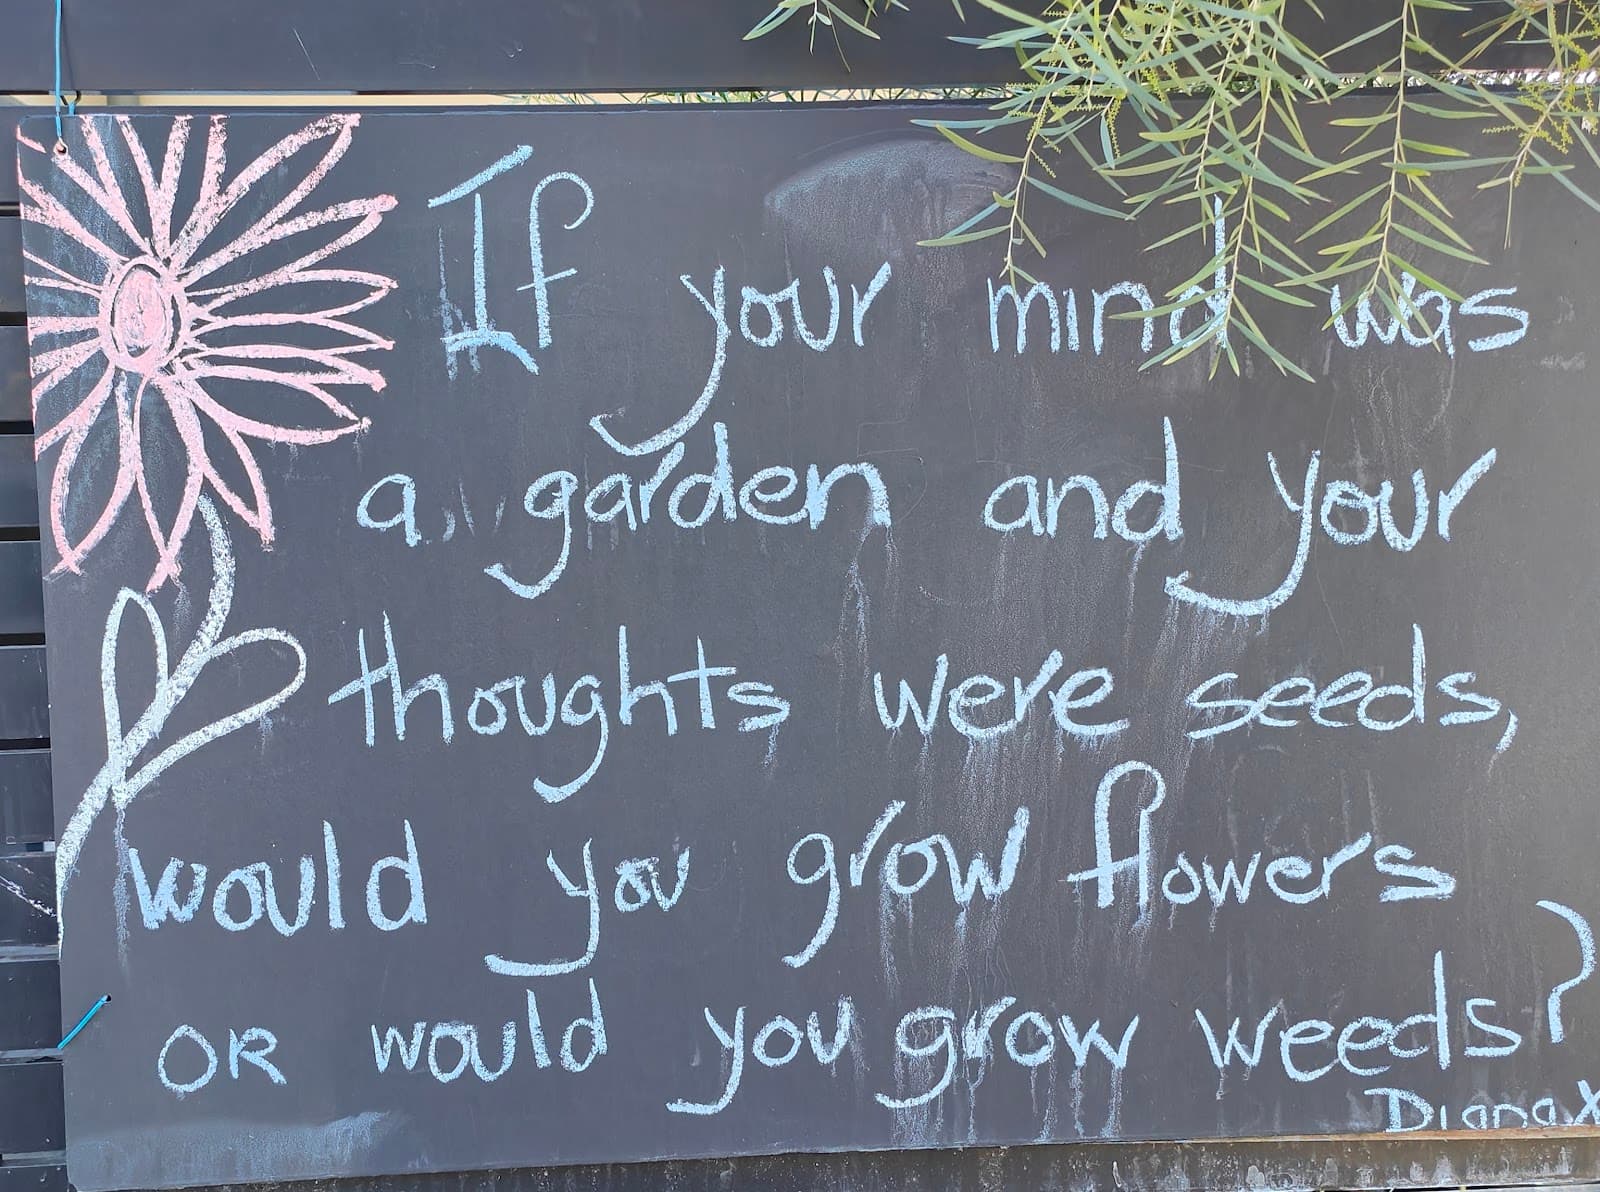 If your mind was
a garden and your
thoughts were seeds,
would you grow flowers
OR would you grow weeds?
Diana X